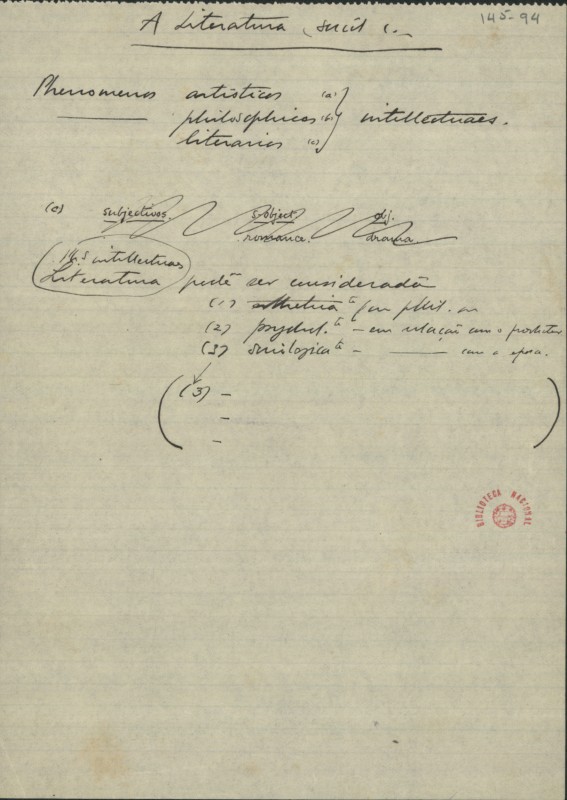 145-94
A Literatura
Phenomenos artisticos (a)
philosophicos (b) intellectuaes.
literarios (c)
(c) subjectivos. subject. obj.
romance. drama
Ph.s intellectuaes
Literatura póde ser considerada
(1) esthetica
(2) psychol.te - em relação com o productor
(3) sociologicate - —— com a epoca.
(3) -
-
-
BIBLIOTECA NACIONAL